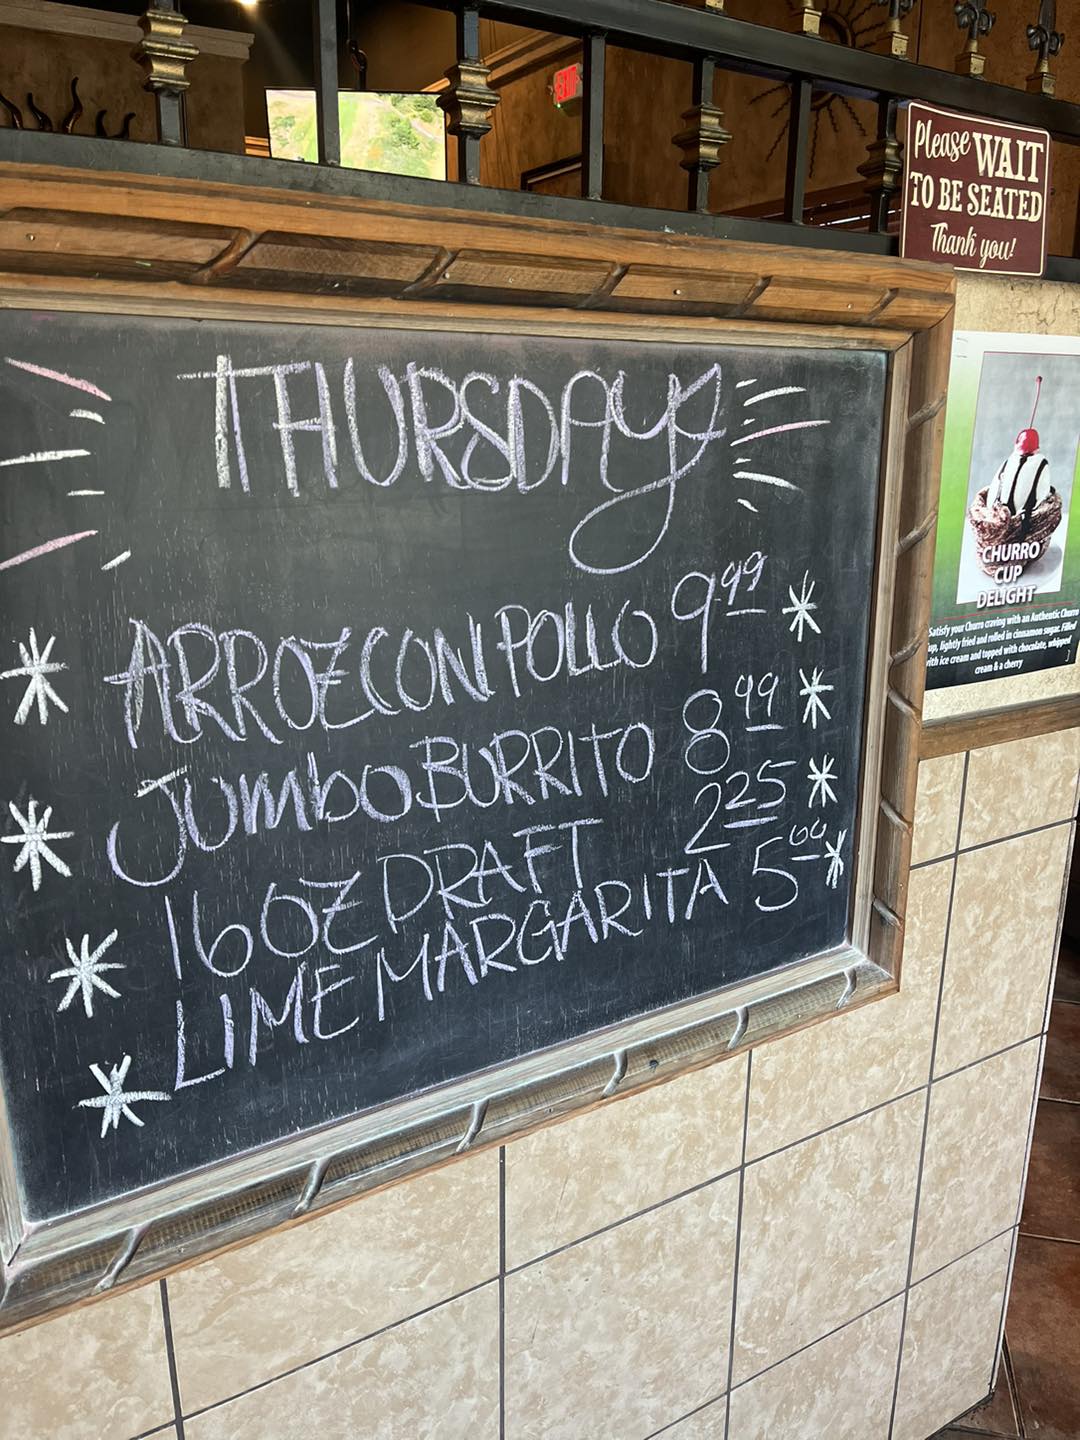 EXIT
Please WAIT
TO BE SEATED
Thank you!
THURSDAY
ARROZ CON POLLO 9.99
JUMBO BURRITO 8.99
16 OZ DRAFT 2.25
LIME MARGARITA 5.00
CHURRO
CUP
DELIGHT
Satisfy your Churro craving with an Authentic Churro
cup, lightly fried and rolled in cinnamon sugar. Filled
with ice cream and topped with chocolate, whipped
cream & a cherry